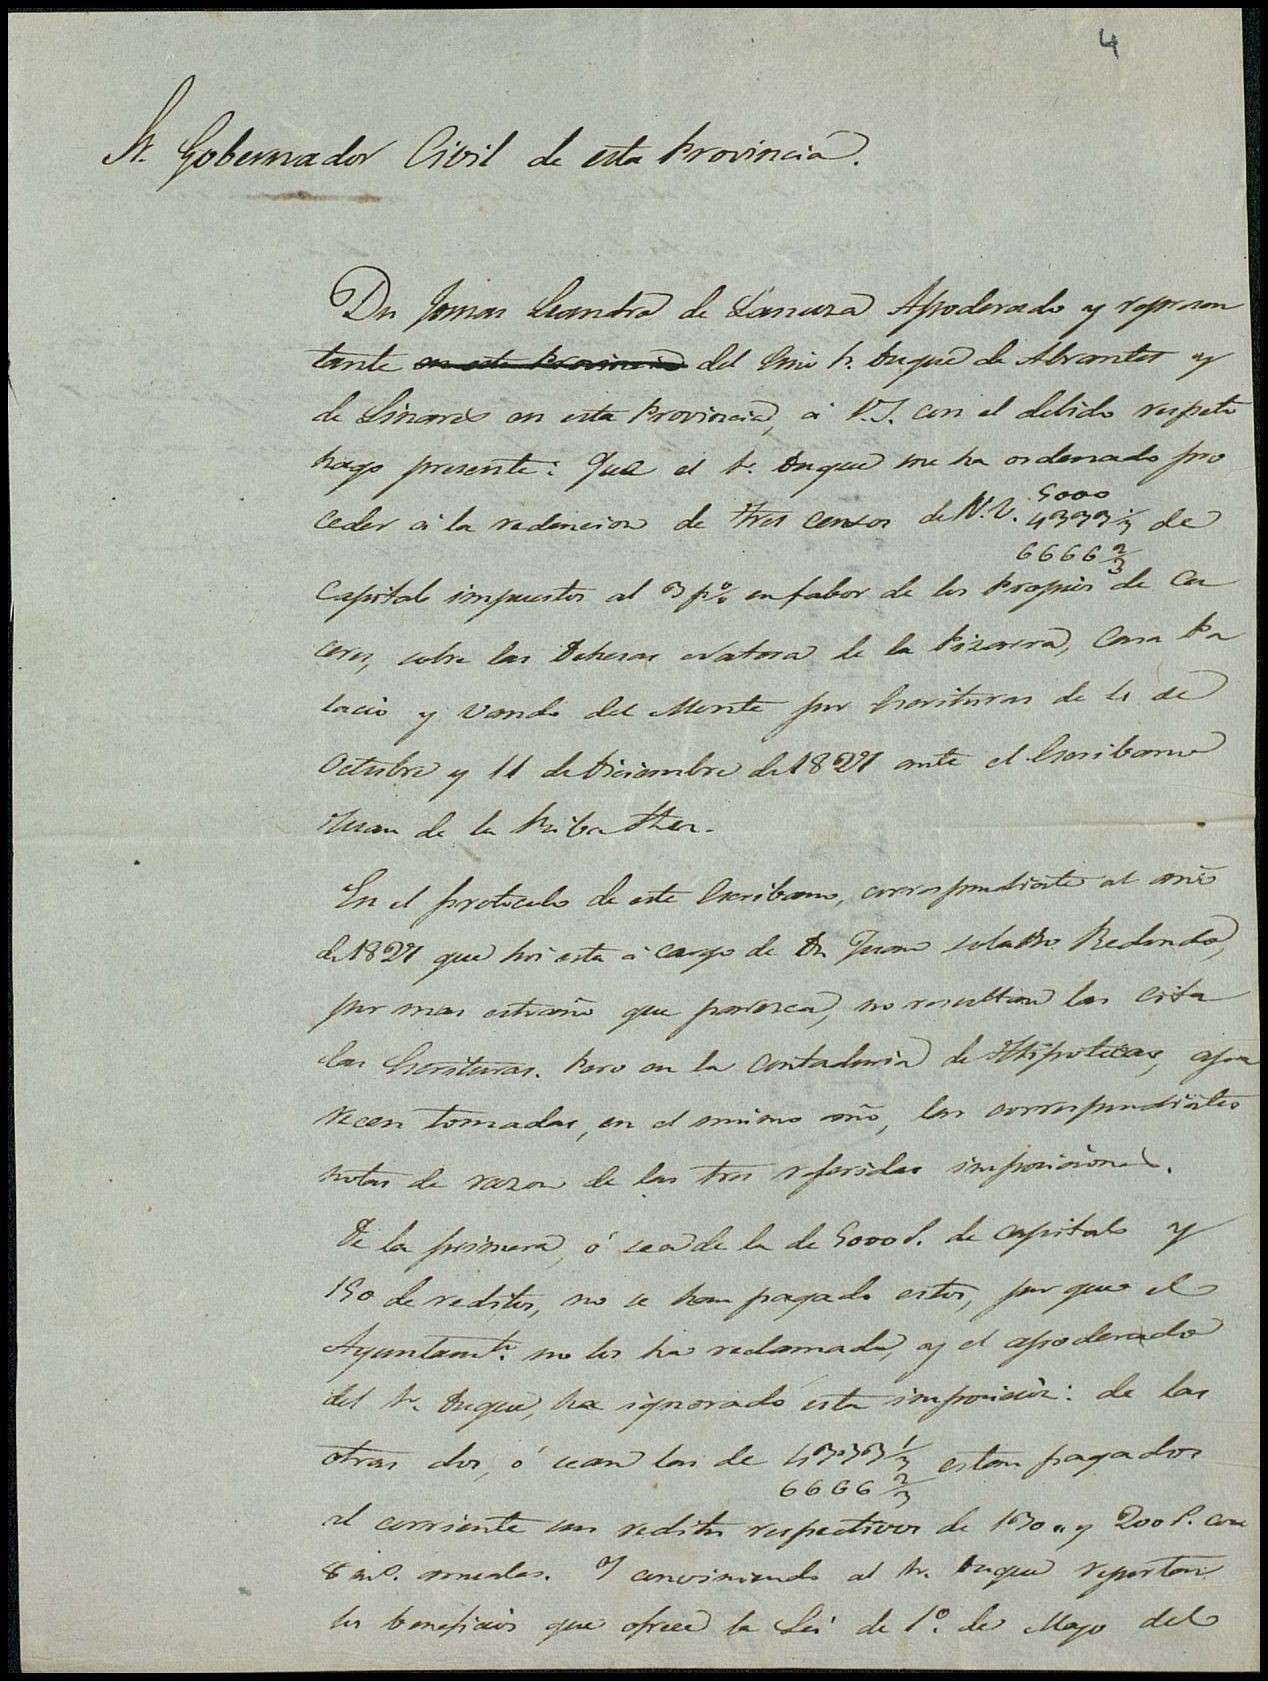 4
Sr. Gobernador Civil de esta Provincia.
Dn Tomas Leandro de Lanuza Apoderado y represen
tante en esta Provincia del Emo Sr. Duque de Abrantes y
de Linares en esta Provincia, á V.S. con el debido respeto
hago presente: Que el Sr. Duque me ha ordenado pro
ceder á la redencion de tres censos de R.V. 5000
4333 1/3 de
6666 2/3
capital impuestos al 3 p% en fabor de los Propios de Ca
ceres, sobre las Dehesas Natera de la Pizarra, Casa Pa
lacio y Vando del Monte por Escrituras de 4 de
Octubre y 11 de Diciembre de 1827 ante el Escribano
Juan de la Riba
En el protocolo de este Escribano, correspondiente al año
de 1827 que hoi esta á cargo de Dn Juan Redondo,
por mas estraño que paresca, no resultan las cita
das Escrituras. Pero en la Contaduria de Hipotecas, apa
recen tomadas, en el mismo año, las correspondientes
notas de razon de las tres referidas imposiciones.
De la primera, ó sea de la de 5000 r. de capital y
150 de reditos, no se han pagado estos, por que el
Ayuntamto. no los ha reclamado, y el apoderado
del Sr. Duque, ha ignorado esta imposicion: de las
otras dos, ó sean las de 4333 1/3 estan pagados
6666 2/3
al corriente sus reditos respectivos de 130 " y 200 r. con
8 ms. anuales. Y conviniendo al Sr. Duque reportar
los beneficios que ofrece la Lei de 1º. de Mayo del